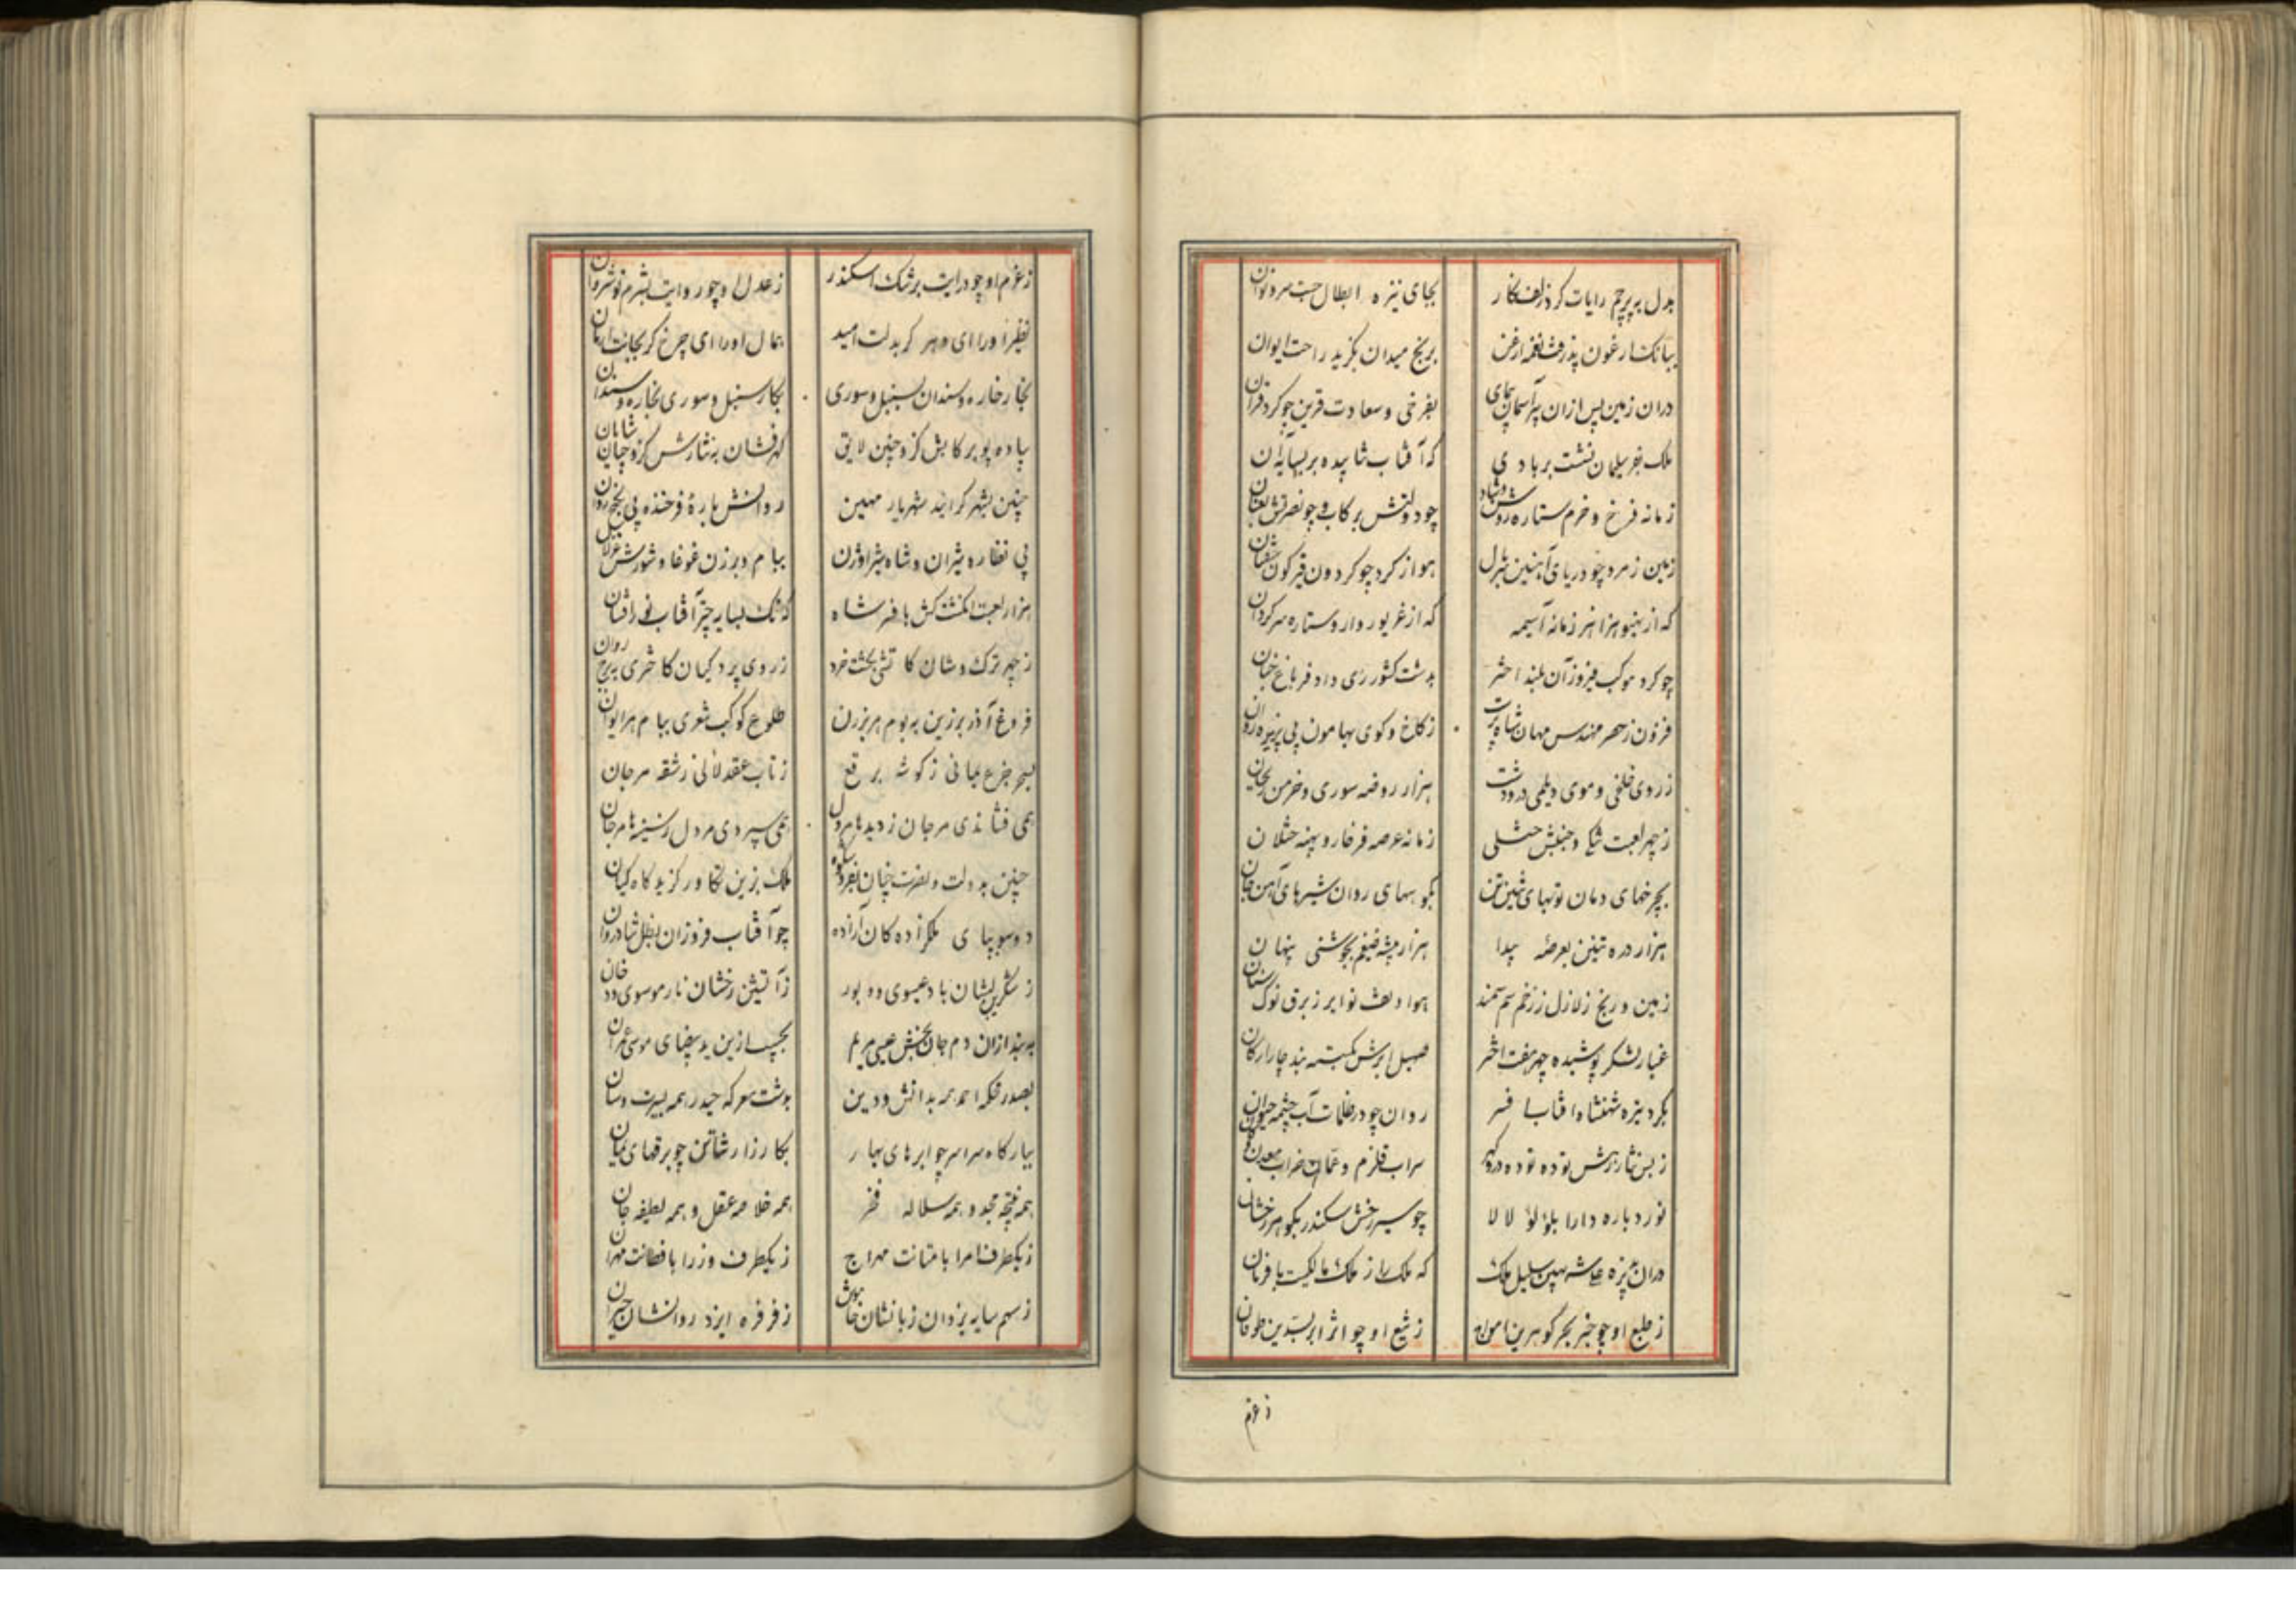 بدل به پرچم رایات کرد زلف نگار
بجای نیزه ابطال جست سرو نوان
ببانک ارغون پذرفت نغمه ارغن
برنج میدان بگزید راحت ایوان
دران زمین پس ازان پیر آسمان پیمای
بفرخی و سعادت قرین چو کرد قران
ملک بفر سلیمان نشست بر بادی
که آفتاب نتابیده بر بسایه آن
زمانه فرخ و خرم ستاره روشن و شاد
چو دولتش برکاب و چو نصرتش بعنان
زمین ز مرد چو دریای آهنین
هوا ز کرد چو کردون قیرکون
که از هزاهز زمانه آسیمه
که از غریو دار و ستاره سرکردان
چو کرد موکب فیروز آن بلند اختر
بدشت کشور ری داد فر باغ جنان
فزون ز حصر مهندس مهان شاه پرست
ز کاخ و کوی بهامون پی پذیره روان
ز روی خلخی و موی دیلمی در و دشت
هزار روضه سوری و خرمن ریحان
ز چهر لعبت و جنبش ختلی
زمانه عرصه فرخار و پهنه ختلان
بچرخهای دمان توپهای تنین تن
بکوههای روان شیرهای آهن خای
هزار دره تنین بعرصه پیدا
هزار بیشه ضیغم بجوشنی پنهان
زمین و رنج زلازل ز زخم سم سمند
هوا و تف نوایر ز برق نوک سنان
غبار لشکر پوشیده چهر هفت اختر
صهیل ابرش بکسته بند چار ارکان
بکرد تیره شهنشاه افتاب افسر
روان چو در ظلمات آب چشمه حیوان
ز بس نثار رهش توده توده در و کهر
سراب قلزم و عمان خراب معدن و کان
نورد باره دارا بلؤلؤ لالا
چو سیر رخش سکندر بکوهر رخشان
دران پذیره سلیل ملک
که ملک را ز ملک مالکیست با فرمان
ز طبع او چو خبر بحر کوهرین امواج
ز تیغ او چو اثر ابر بسدین طوفان
زعزم
زعزم او چو درایت برشک اسکندر
ز عدل او چو روایت بشرم نوشروان
نظیر او را ای دهر کر بدلت امید
همال او را ای چرخ کر بجانت ارمان
نجار خاره و سندان بسنبل و سوری
بکار سنبل و سوری بخاره و سندان
پیاده پو بر کابش کزو چنین لایق
کهرفشان به نثارش کزو چنان شایان
چنین بشهر کرایند شهریار مهین
روانش باره فرخنده پی بکنج روان
پی نظاره شیران و شاه شیر اوژن
ببام و برزن غوغا و شورش غزلان
هزار لعبت انکشت کش بافسر شاه
که نک بسایه چتر آفتاب نور افشان
ز چهر ترک وشان کاتشی بکشت خرد
ز روی پردکیان کاخری به برج روان
فروغ آذر برزین به بوم هر برزن
طلوع کوکب شعری ببام هر ایوان
بسحر جزع یمانی ز کوشه برقع
ز تاب عقد لآلی ز شقه مرجان
همی فشاندی مرجان ز دیدها مردل
همی سپردی مردل ز سینه‌ها مرجان
چنین بدولت و نصرت چنان بفر و شکوه
ملک بزین تکاور کزید کاه کیان
دو سو بپای ملکزاده کان آزاده
چو آفتاب فروزان بظل شادروان
ز شکرین لبشان باد عیسوی ده بور
ز آتشین رخشان نار موسوی دودخان
ازان دم جان بخش عیسی مریم
بجیب ازین ید بیضای موسی عمران
بصدر تکیه احمد بدانش و دین
بدشت معرکه حیدر همه بسیرت و سان
ببارکاه سراسر چو ابرهای بهار
بکارزار چو برقهای یمان
همه نتیجه مجد و همه سلاله فخر
همه خلاصه عقل و همه لطیفه جان
ز یکطرف امرا با متانت مهراج
ز یکطرف وزرا با فطانت مهران
ز سهم سایه یزدان زبانشان خاموش
ز فر فره ایزد روانشان حیران